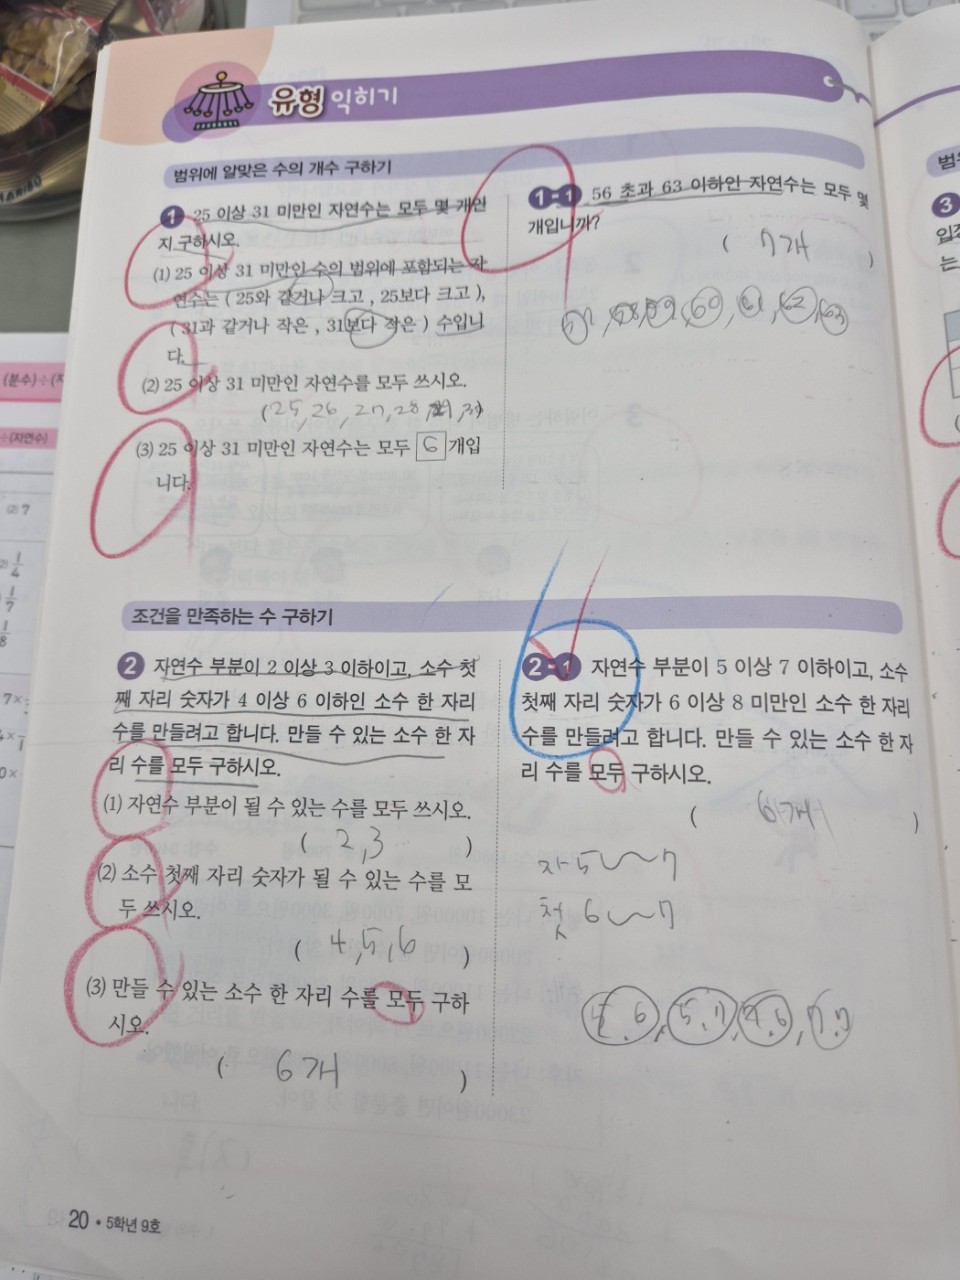 유형 익히기
범위에 알맞은 수의 개수 구하기
1 25 이상 31 미만인 자연수는 모두 몇 개인
지 구하시오.
(1) 25 이상 31 미만인 수의 범위에 포함되는 자
연수는 ( 25와 같거나 크고 , 25보다 크고 ),
( 31과 같거나 작은 , 31보다 작은 ) 수입니
다.
(2) 25 이상 31 미만인 자연수를 모두 쓰시오.
(25, 26, 27, 28, 29, 30)
(3) 25 이상 31 미만인 자연수는 모두 6 개입
니다.
1-1 56 초과 63 이하인 자연수는 모두 몇
개입니까?
( 7개 )
57, 58, 59, 60, 61, 62, 63
조건을 만족하는 수 구하기
2 자연수 부분이 2 이상 3 이하이고, 소수 첫
째 자리 숫자가 4 이상 6 이하인 소수 한 자리
수를 만들려고 합니다. 만들 수 있는 소수 한 자
리 수를 모두 구하시오.
(1) 자연수 부분이 될 수 있는 수를 모두 쓰시오.
( 2,3 )
(2) 소수 첫째 자리 숫자가 될 수 있는 수를 모
두 쓰시오.
( 4,5,6 )
(3) 만들 수 있는 소수 한 자리 수를 모두 구하
시오.
( 6개 )
2-1 자연수 부분이 5 이상 7 이하이고, 소수
첫째 자리 숫자가 6 이상 8 미만인 소수 한 자리
수를 만들려고 합니다. 만들 수 있는 소수 한 자
리 수를 모두 구하시오.
( 6개 )
자 5~7
첫 6~7
5.7
7.7
20 • 5학년 9호
3
입장
는
(분수)÷(자
÷(자연수)
(2) 7